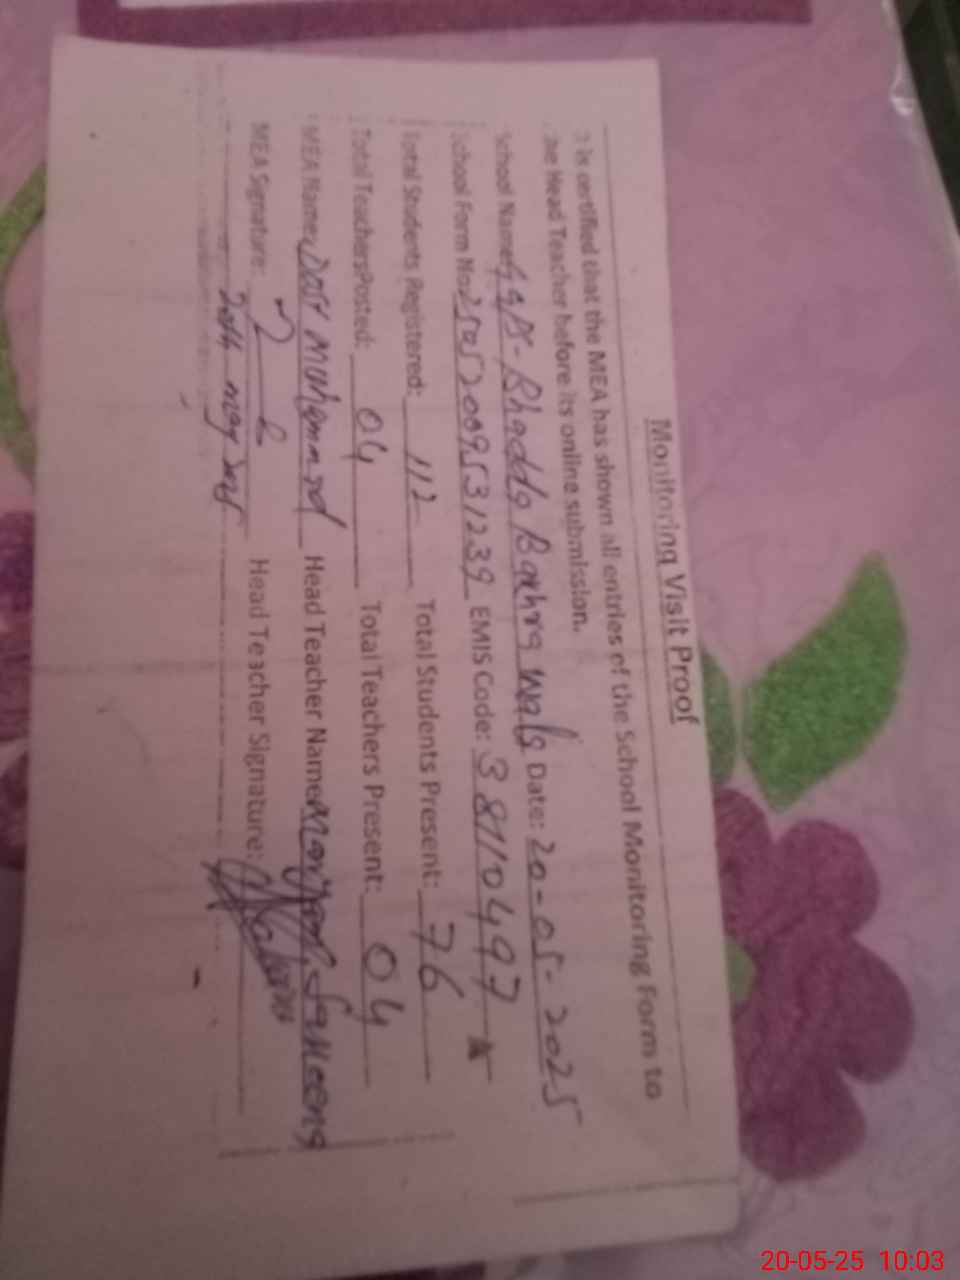 Monitoring Visit Proof
is certified that the MEA has shown all entries of the School Monitoring Form to
Head Teacher before its online submission.
School Name: Bhadda Date: 20-05-2025
School Form No: EMIS Code: 38110497
Total Students Registered: 112 Total Students Present: 76
Total Teachers Posted: 04 Total Teachers Present: 04
MEA Name: Dost Muhammad Head Teacher Name:
MEA Signature: Head Teacher Signature:
20th may
20-05-25 10:03